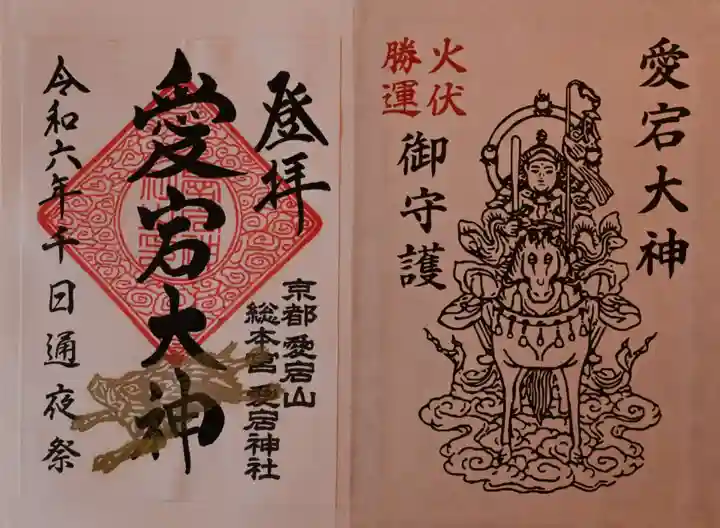 愛宕大神
火伏
勝運
御守護
登拝
愛宕大神
京都 愛宕山
総本宮 愛宕神社
令和六年千日通夜祭